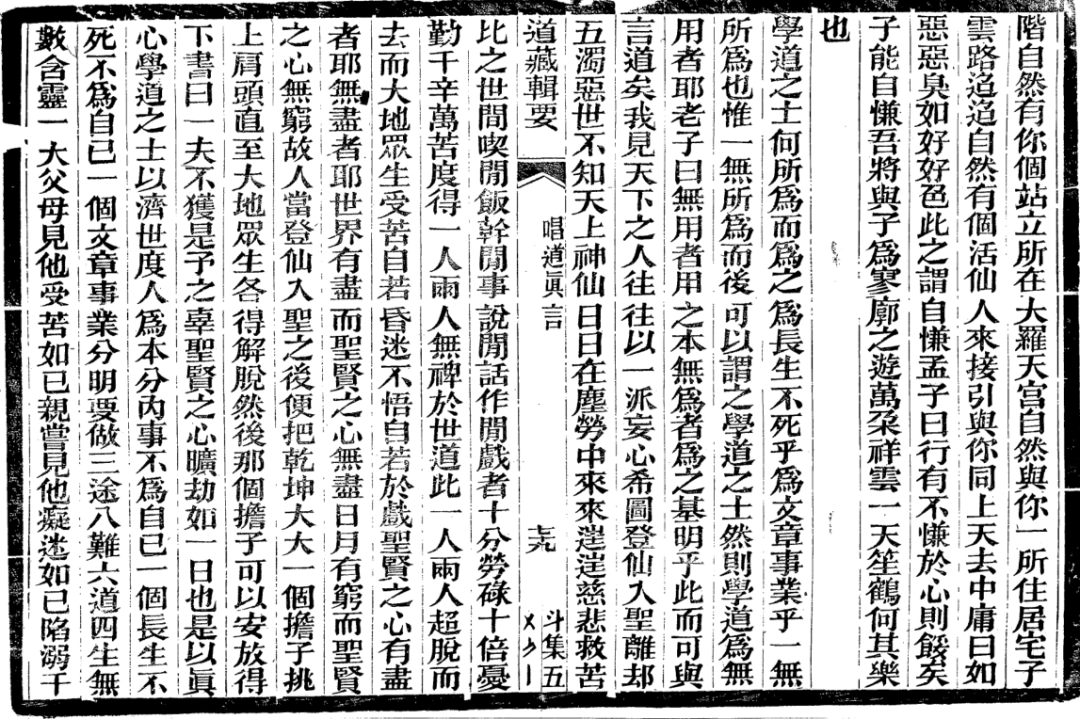 階自然有你個站立所在大羅天宮自然與你一所住居宅子
雲路迢迢自然有個活仙人來接引與你同上天去中庸曰如
惡惡臭如好好色此之謂自慊孟子曰行有不慊於心則餒矣
子能自慊吾將與子為寥廓之遊萬朶祥雲一天笙鶴何其樂
也
學道之士何所為而為之為長生不死乎為文章事業乎一無
所為也惟一無所為而後可以謂之學道之士然則學道為無
用者耶老子曰無用者用之本無為者為之基明乎此而可與
言道矣我見天下之人往往以一派妄心希圖登仙入聖離却
五濁惡世不知天上神仙日日在塵勞中來來往往慈悲救苦
道藏輯要
唱道眞言
斗集五
比之世間喫閒飯幹閒事說閒話作閒戲者十分勞碌十倍憂
勤千辛萬苦度得一人兩人無禆於世道此一人兩人超脫而
去而大地眾生受苦自若昏迷不悟自若於戲聖賢之心有盡
者耶無盡者耶世界有盡而聖賢之心無盡日月有窮而聖賢
之心無窮故人當登仙入聖之後便把乾坤大大一個擔子挑
上肩頭直至大地眾生各得解脫然後那個擔子可以安放得
下書曰一夫不獲是予之辜聖賢之心曠劫如一日也是以眞
心學道之士以濟世度人為本分內事不為自己一個長生不
死不為自己一個文章事業分明要做三途八難六道四生無
數含靈一大父母見他受苦如已親嘗見他癡迷如已陷溺千